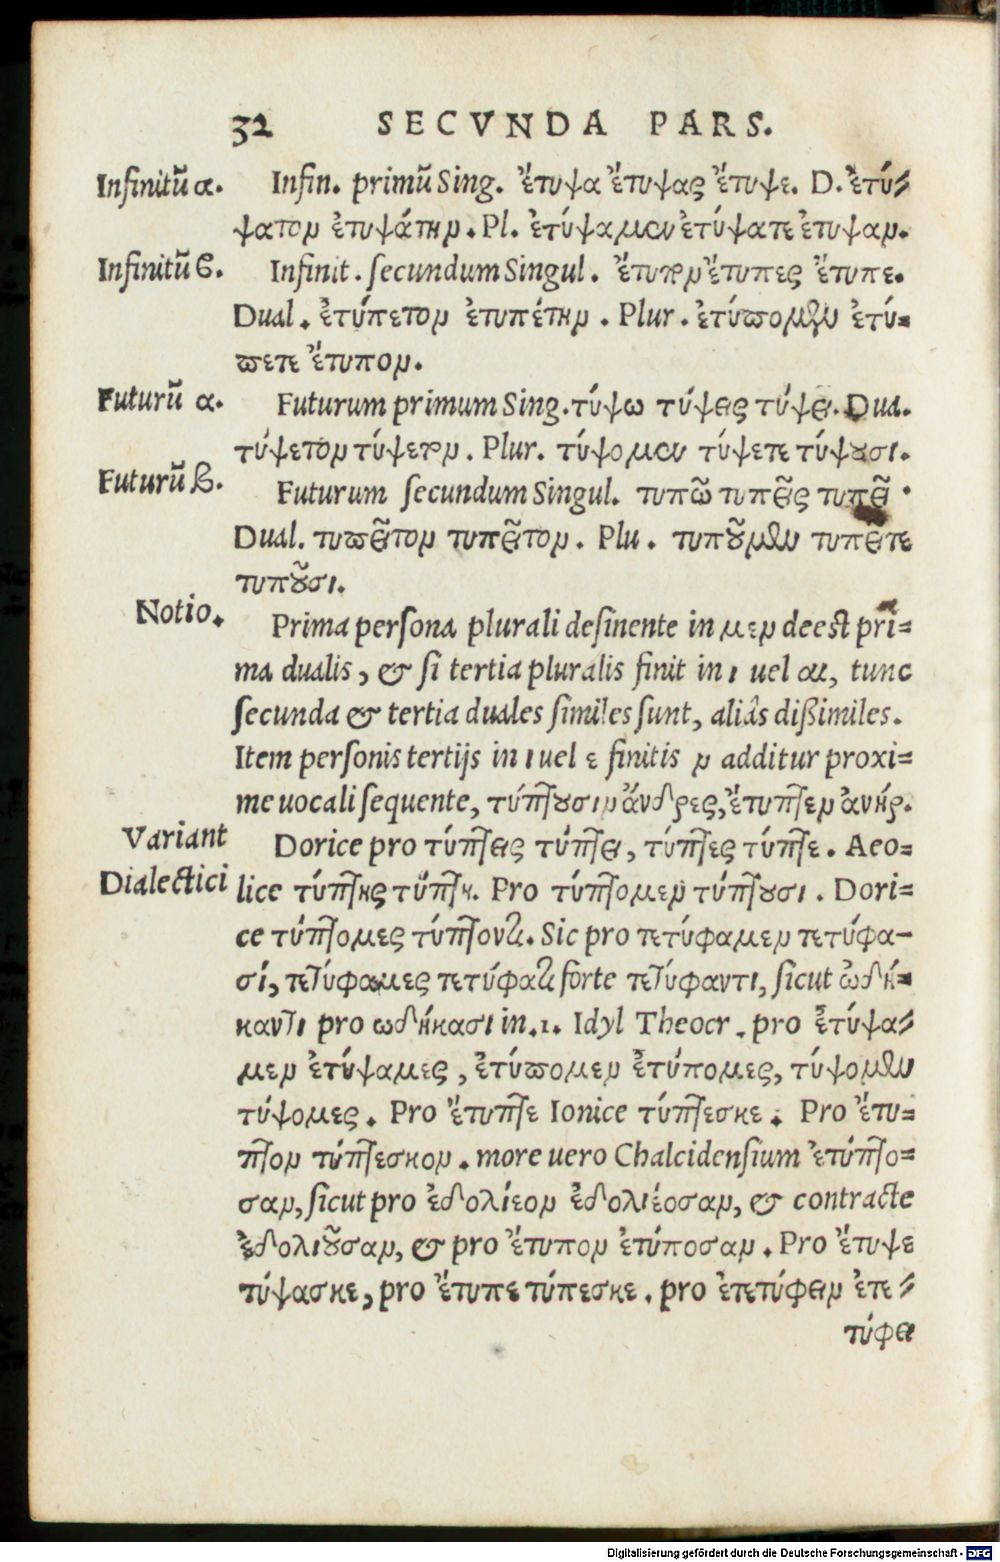 32 SECVNDA PARS.
Infinitũ α. Infin. primũ Sing. ἔτυψα ἔτυψας ἔτυψε. D. ἐτύ-
ψατον ἐτυψάτην. Pl. ἐτύψαμεν ἐτύψατε ἔτυψαν.
Infinitũ β. Infinit. secundum Singul. ἔτυπον ἔτυπες ἔτυπε.
Dual. ἐτύπετον ἐτυπέτην. Plur. ἐτύπομεν ἐτύ=
πετε ἔτυπον.
Futurũ α. Futurum primum Sing. τύψω τύψεις τύψει. Dua.
τύψετον τύψετον. Plur. τύψομεν τύψετε τύψουσι.
Futurũ β. Futurum secundum Singul. τυπῶ τυπεῖς τυπεῖ.
Dual. τυπεῖτον τυπεῖτον. Plu. τυποῦμεν τυπεῖτε
τυποῦσι.
Notio. Prima persona plurali desinente in μεν deest pri=
ma dualis, & si tertia pluralis finit in ι uel αι, tunc
secunda & tertia duales similes sunt, aliâs dißimiles.
Item personis tertijs in ι uel ε finitis ν additur proxi=
me uocali sequente, τύπτουσιν ἄνδρες, ἔτυπτεν ἀνήρ.
Variant Dorice pro τύπτεις τύπτει, τύπτες τύπτε. Aeo=
Dialectici lice τύπτης τύπτη. Pro τύπτομεν τύπτουσι. Dori=
ce τύπτομες τύπτοντι. Sic pro τετύφαμεν τετύφα-
σί, τετύφαμες τετύφατι forte τετύφαντι, sicut ὠδή=
καντι pro ωδήκασι in .1. Idyl Theocr. pro ἐτύψα-
μεν ἐτύψαμες, ἐτύπομεν ἐτύπομες, τύψομεν
τύψομες. Pro ἔτυπτε Ionice τύπτεσκε. Pro ἔτυ=
πτον τύπτεσκον. more uero Chalcidensium ἐτύπτο=
σαν, sicut pro ἐδολίεον ἐδολιέοσαν, & contracte
ἐδολιοῦσαν, & pro ἔτυπον ἐτύποσαν. Pro ἔτυψε
τύψασκε, pro ἔτυπε τύπεσκε. pro ἐτετύφειν ἐτε-
τύφει
Digitalisierung gefördert durch die Deutsche Forschungsgemeinschaft - DFG